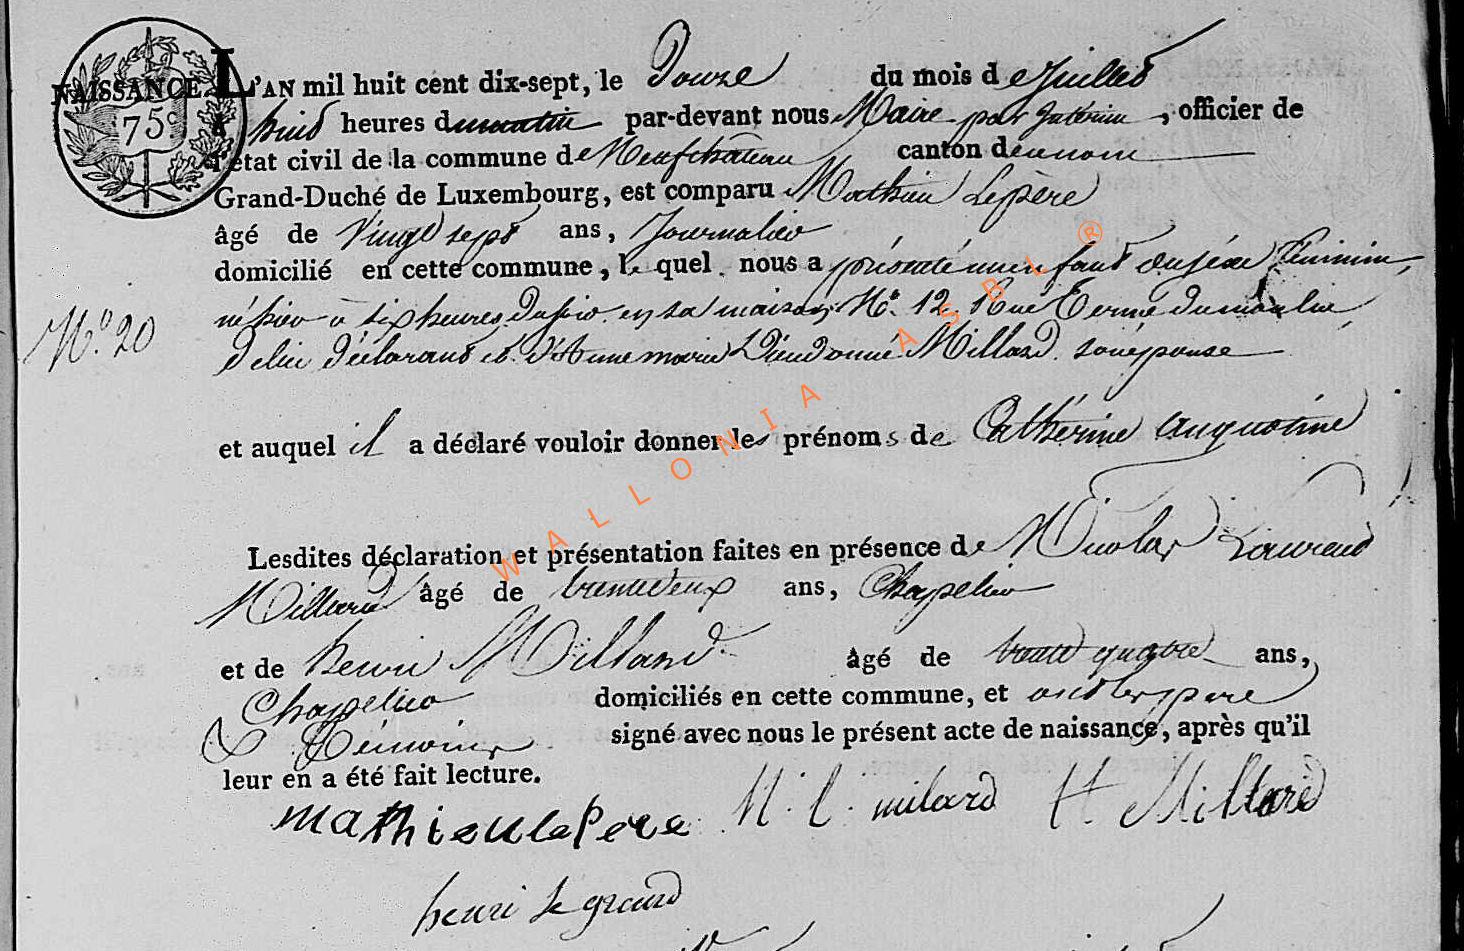 NAISSANCE. L'AN mil huit cent dix-sept, le Douze du mois de Juillet
75c
à huit heures du matin par-devant nous Maire par interim, officier de
l'état civil de la commune de Neufchâteau canton du nom
Grand-Duché de Luxembourg, est comparu Mathieu Lepère
âgé de Vingt sept ans, Journalier
domicilié en cette commune, le quel nous a présenté un enfant du séxe féminin,
né hier à six heures du soir en sa maison N.° 12. Rue Terme du moulin
N.° 20
de lui déclarant et d'Anne marie Dieudonné Millard son épouse
et auquel il a déclaré vouloir donner les prénoms de Cathérine augustine
Lesdites déclaration et présentation faites en présence de Nicolas Laurend
Millard âgé de trente deux ans, Chapelier
et de henri Millard âgé de trente quatre ans,
Chapelier domiciliés en cette commune, et ont les pere
& Témoins signé avec nous le présent acte de naissance, après qu'il
leur en a été fait lecture.
mathieu lepere N. l. milard H. Millard
henri le grand
WALLONIA ASBL ®